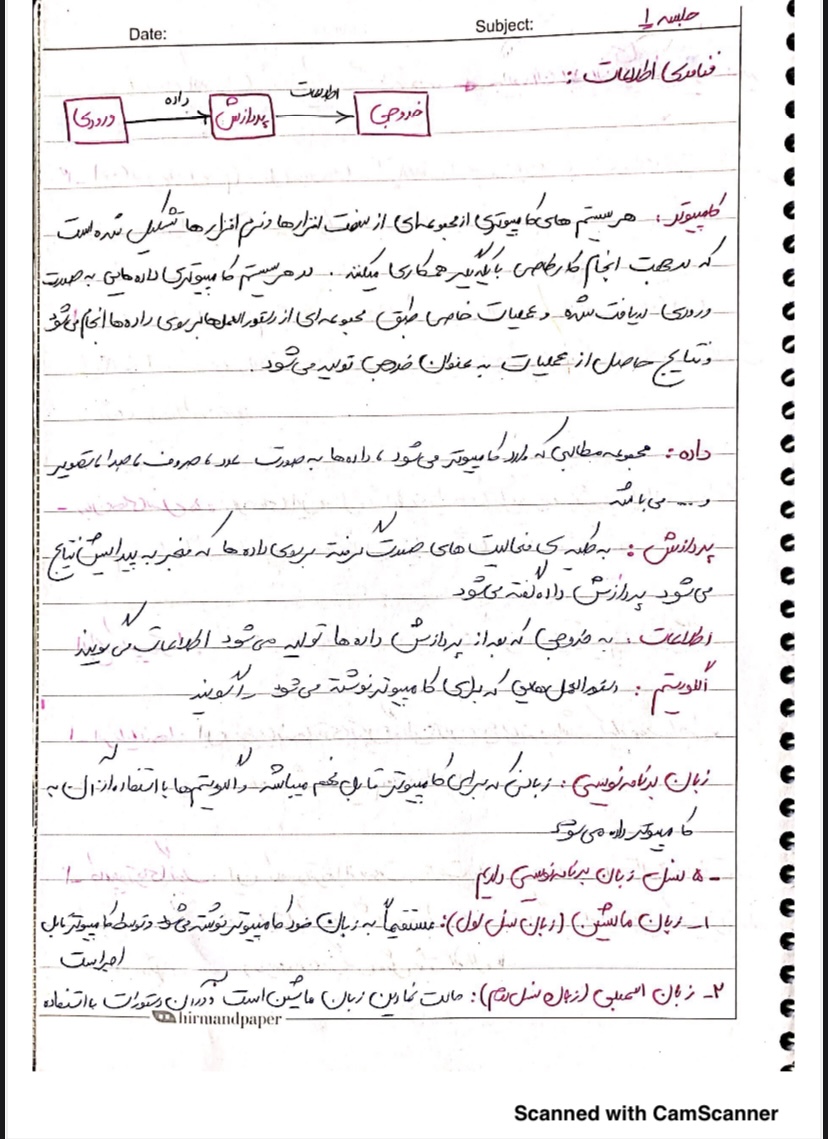 جلسه ۱
Date:
Subject:
فناوری اطلاعات :
ورودی داده پردازش اطلاعات خروجی
کامپیوتر : هر سیستم های کامپیوتری از مجموعه ای از سخت افزارها و نرم افزارها تشکیل شده است
که در جهت انجام کار خاصی با یکدیگر همکاری میکنند . در هر سیستم کامپیوتری داده هایی به صورت
ورودی دریافت شده و عملیات خاصی طبق مجموعه ای از دستورالعمل ها بر روی داده ها انجام می شود
و نتایج حاصل از عملیات به عنوان خروجی تولید می شود .
داده : مجموعه مطالبی که وارد کامپیوتر می شود ، داده ها به صورت عدد ، حروف ، صدا ، تصویر
و ... می باشد
پردازش : به کلیه ی فعالیت های صورت گرفته بر روی داده ها که منجر به پیدایش نتایج
می شود پردازش داده گفته می شود
اطلاعات : به خروجی که بعد از پردازش داده ها تولید می شود اطلاعات می گویند
الگوریتم : دستورالعمل هایی که برای کامپیوتر نوشته می شود را گویند
زبان برنامه نویسی : زبانی که برای کامپیوتر قابل فهم میباشد و الگوریتم ها با استفاده از آن به
کامپیوتر داده می شود
- ۵ نسل زبان برنامه نویسی داریم
۱- زبان ماشین (زبان نسل اول) : مستقیماً به زبان خود کامپیوتر نوشته می شود و توسط کامپیوتر قابل
اجرا است
۲- زبان اسمبلی (زبان نسل دوم) : حالت نمادین زبان ماشین است و در آن دستورات با استفاده
hirmandpaper
Scanned with CamScanner